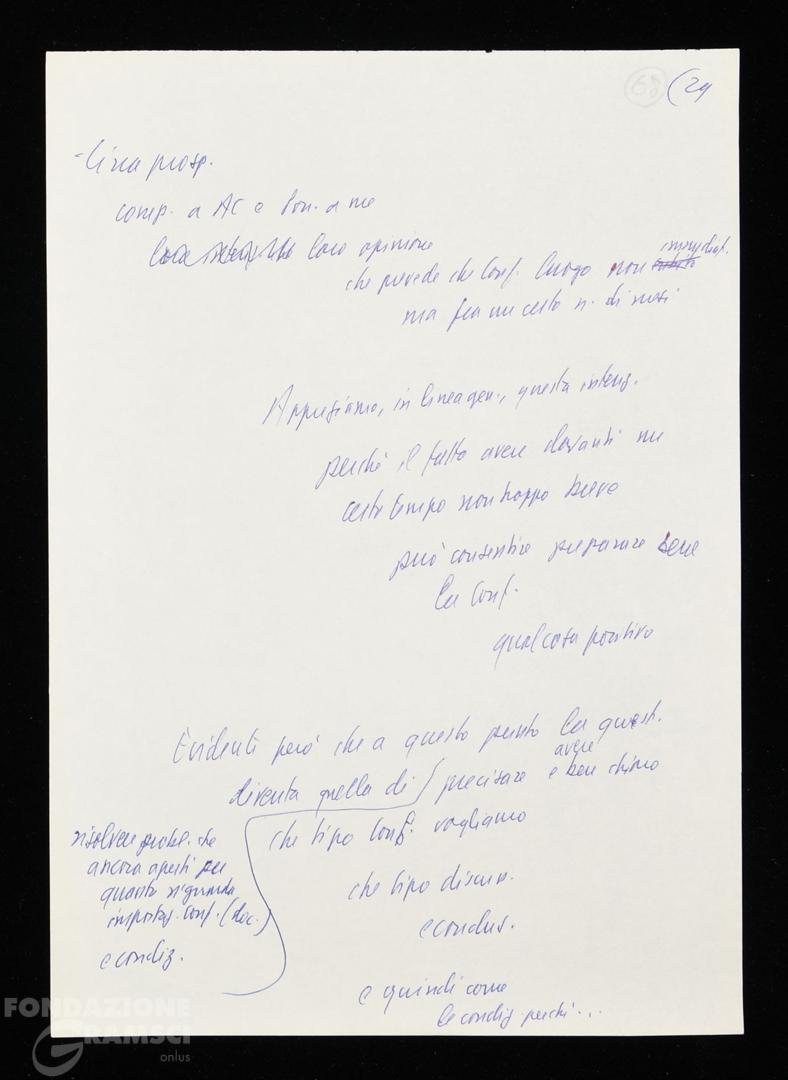 68 (24
- Circa prosp.
comp. a AC e Pon. a me
loro opinione
che prevede che Conf. luogo non immediat.
ma fra un certo n. di mesi
Apprezziamo, in linea gen., questa intenz.
perché il fatto avere davanti un
certo tempo non troppo breve
può consentire preparare bene
la Conf.
qualcosa positivo
Evidente però che a questo punto la quest.
diventa quella di precisare e avere ben chiaro
che tipo Conf. vogliamo
che tipo discuss.
e conclus.
e quindi come
le condiz. perché...
risolvere probl. che
ancora aperti per
quanto riguarda
impostaz. Conf. (doc.)
e condiz.
FONDAZIONE
GRAMSCI
onlus